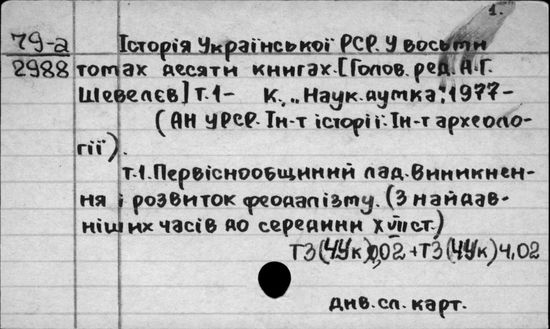 1.
79-а Історія Української РСР. У восьми
2988 томах десяти книгах. [Голов. ред. А.Г.
Шевелєв] Т.1- К., „Наук. думка", 1977-
(АН УРСР. Ін-т історії. Ін-т археоло-
гії).
т.1. Первіснообщинний лад. Виникнен-
ня і розвиток феодалізму. (З найдав-
ніших часів до середини XVII ст.)
Т3(4Ук)0,02+Т3(4Ук)4,02
див. сл. карт.